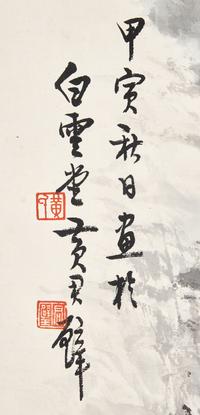 甲寅秋日畫於
白雲堂黃君璧